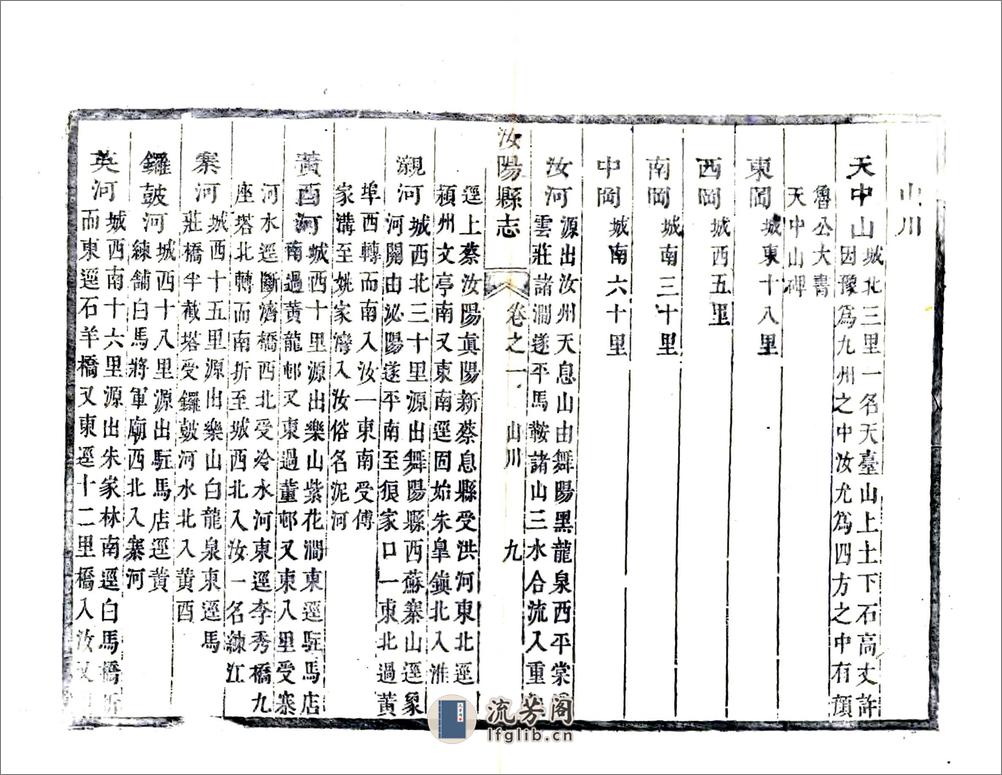 山川
天中山城北三里一名天臺山上土下石高丈許
因豫爲九州之中汝尤爲四方之中有顏
魯公大書
天中山碑
東岡城東十八里
西岡城西五里
南岡城南三十里
中岡城南六十里
汝河源出汝州天息山由舞陽黑龍泉西平棠
雲莊諸澗遂平馬鞍諸山三水合流入重
汝陽縣志 卷之一 山川 九
逕上蔡汝陽真陽新蔡息縣受洪河東北逕
潁州文亭南又東南逕固始朱皋鎮北入淮
瀙河城西北三十里源出舞陽縣西蘇寨山逕象
河關由泌陽遂平南至狼家口一東北過黃
埠西轉而南入汝一東南受傅
家溝至姚家灣入汝俗名泥河
黃酉河城西十里源出樂山紫花澗東逕駐馬店
南過黃龍邨又東過董邨又東入里受寨
河水逕斷濟橋西北受冷水河東逕李秀橋九
座塔北轉而南折至城西北入汝一名練江
寨河城西十五里源出樂山白龍泉東逕馬
莊橋半截塔受鑼鼓河水北入黃酉
鑼鼓河城西十八里源出駐馬店逕黃
練舖白馬將軍廟西北入寨河
英河城西南十六里源出朱家林南逕白馬橋
而東逕石羊橋又東逕十二里橋入汝又
流芳阁
lfglib.cn